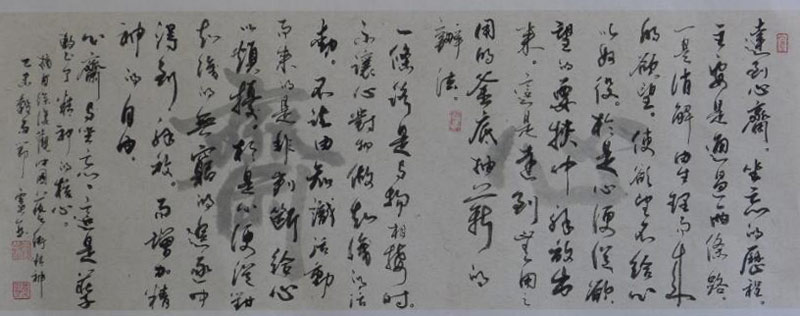 達到心齋、坐忘的歷程,
主要是通過兩條路。
一是消解由生理而來
的欲望,使欲望不給心
以奴役,於是心便從欲
望的要挾中解放出
來。這是達到無用之
用的釜底抽薪的
辦法。
一條路是与物相接時。
不讓心對物做知識的活
動,不讓由知識活動
而來的是非判斷給心
以煩擾,於是心便從對
知識的無窮的追逐中
得到解放,而增加精
神的自由。
心齋与坐忘,這是
精神的核心。
摘自徐復觀中國藝術精神
心齋